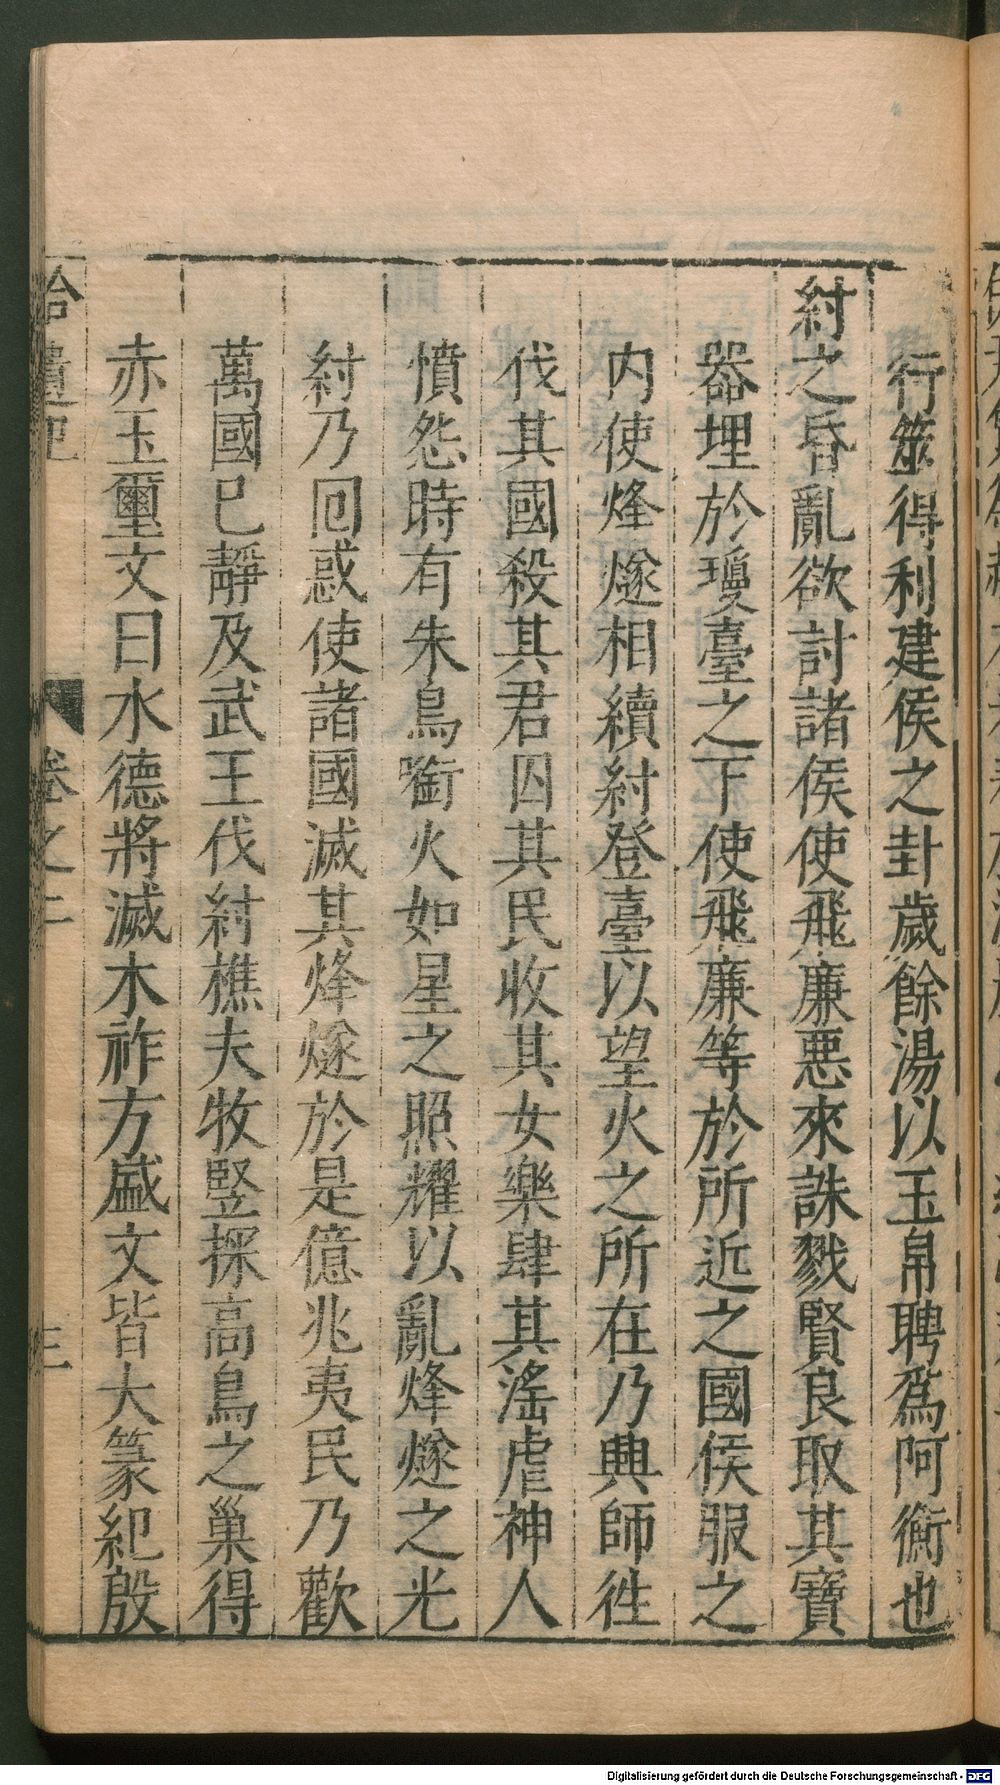 行筮得利建侯之卦歲餘湯以玉帛聘爲阿衡也
紂之昏亂欲討諸侯使飛廉惡來誅戮賢良取其寶
器埋於瓊臺之下使飛廉等於所近之國侯服之
内使烽燧相續紂登臺以望火之所在乃興師徃
伐其國殺其君囚其民收其女樂肆其滛虐神人
憤怨時有朱鳥銜火如星之照耀以亂烽燧之光
紂乃囘惑使諸國滅其烽燧於是億兆夷民乃歡
萬國已靜及武王伐紂樵夫牧竪探高鳥之巢得
赤玉璽文曰水德將滅木祚方盛文皆大篆紀殷
拾遺記 卷之二 三
Digitalisierung gefördert durch die Deutsche Forschungsgemeinschaft - DFG